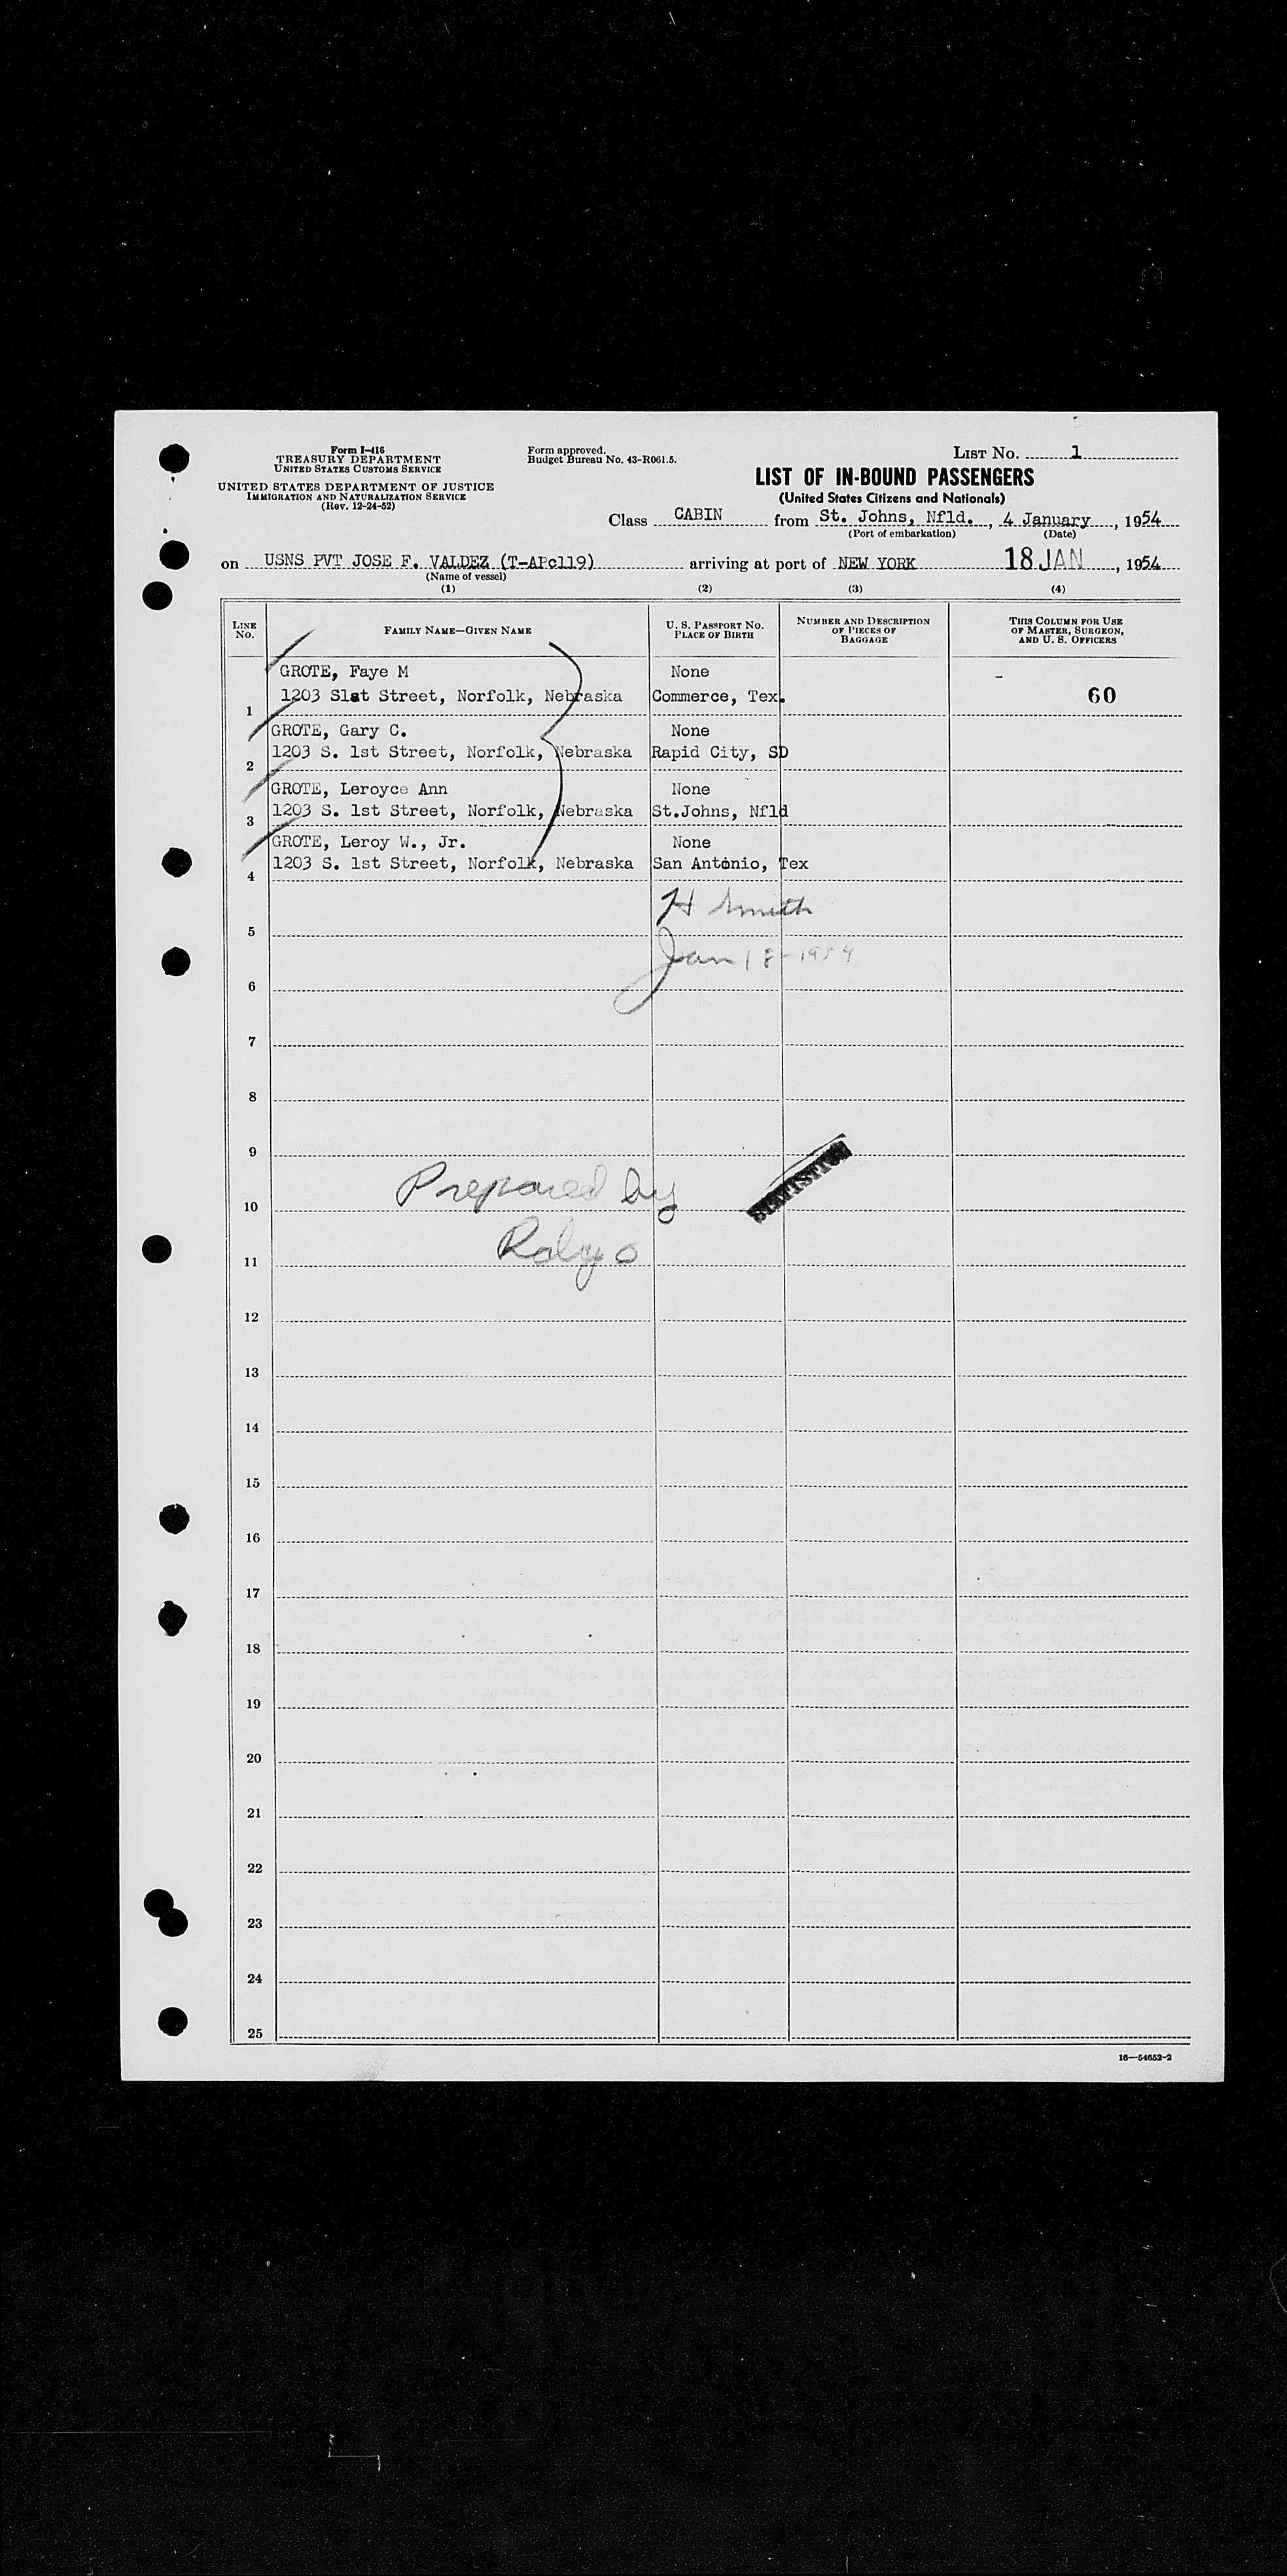 Form I-416
TREASURY DEPARTMENT
UNITED STATES CUSTOMS SERVICE
UNITED STATES DEPARTMENT OF JUSTICE
IMMIGRATION AND NATURALIZATION SERVICE
(Rev. 12-24-52)
Form approved.
Budget Bureau No. 43-R061.5.
LIST No. 1
LIST OF IN-BOUND PASSENGERS
(United States Citizens and Nationals)
Class CABIN from St. Johns, Nfld., 4 January, 1954
(Port of embarkation) (Date)
on USNS PVT JOSE F. VALDEZ (T-APc119) arriving at port of NEW YORK 18 JAN, 1954
(Name of vessel)
(1) (2) (3) (4)
LINE No. FAMILY NAME—GIVEN NAME U. S. PASSPORT No. PLACE OF BIRTH NUMBER AND DESCRIPTION OF PIECES OF BAGGAGE THIS COLUMN FOR USE OF MASTER, SURGEON, AND U. S. OFFICERS
GROTE, Faye M None
1203 Slat Street, Norfolk, Nebraska Commerce, Tex. 60
1
GROTE, Gary C. None
1203 S. 1st Street, Norfolk, Nebraska Rapid City, SD
2
GROTE, Leroyce Ann None
1203 S. 1st Street, Norfolk, Nebraska St.Johns, Nfld
3
GROTE, Leroy W., Jr. None
1203 S. 1st Street, Norfolk, Nebraska San Antonio, Tex
4
H Smith
5
Jan 18-1954
6
7
8
9
Prepared by
10
11
12
13
14
15
16
17
18
19
20
21
22
23
24
25
16—54652-2